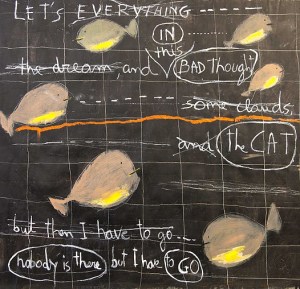 LET'S EVERYTHING
IN
this
the dream and BAD thought
some clouds,
and the CAT
but then I have to go
nobody is there but I have to GO